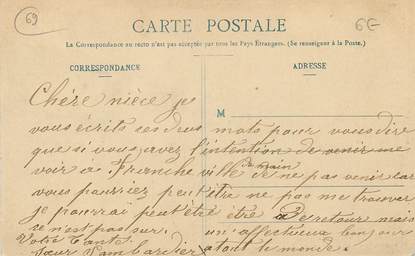 69
6E
CARTE POSTALE
La Correspondance au recto n'est pas acceptée par tous les Pays Etrangers. (Se renseigner à la Poste.)
CORRESPONDANCE
ADRESSE
M
Chére nièce je
vous écrits ses deus mots pour vous dire
que si vous avez l'intention de venir me
voir à Franche ville de ne pas venir car
demain
vous pourriez peut être ne pas me trouver
je pourrai peut être être De retour mais
se n'est pas sur. un affectueux bonjour
Votre Tante
a tout le monde.